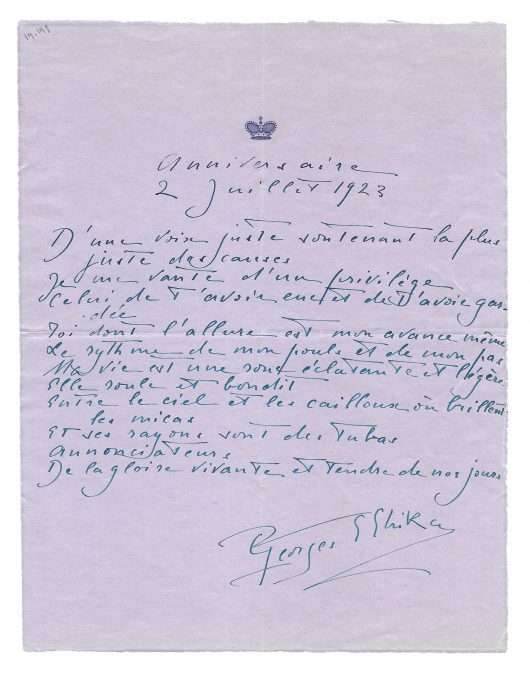 19.198
Anniversaire
2 Juillet 1923
D'une voix juste soutenant la plus
juste des causes
Je me vante d'un privilège
Celui de t'avoir eue et de t'avoir gar-
dée
Toi dont l'allure est mon avance même
Le rythme de mon pouls et de mon pas
Ma vie est une éclatante et légère
Elle roule et bondit
Entre le ciel et les cailloux où brillent
les micas
Et ses rayons sont des tubas
annonciateurs
De la gloire vivante et tendre de nos jours
Georges Ghika